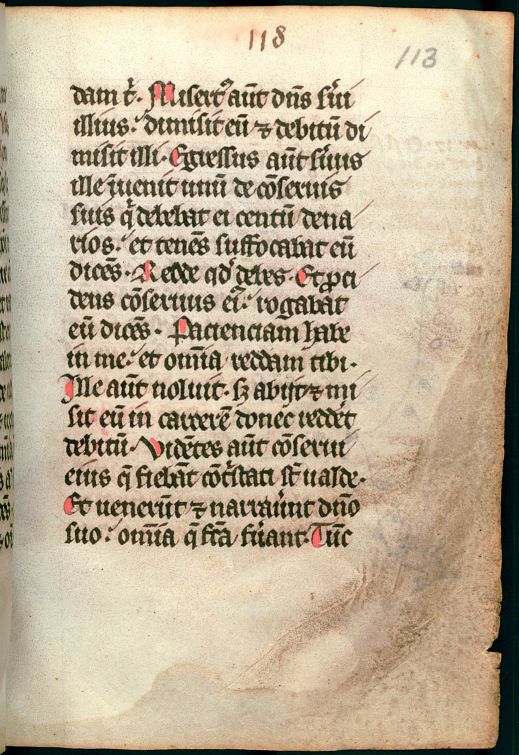 118
113
dam t̄. Misert᷒ aūt dn̄s s̄ui
illius. dimisit eū ⁊ debitū di
misit illi. Egressus aūt s̄uus
ille īuenit unū de cōseruis
suis q̄ debebat ei centū dena
rios. et tenēs suffocabat eū
dicēs. Redde qd̓ debes. Et ꝓci
dens cōseruus ei᷒. rogabat
eū dicēs. Pacienciam habe
in me. et om̄ia reddam tibi.
Ille aūt noluit. sꝫ abijt ⁊ mi
sit eū in carcerē donec redd̓et
debitū. Vidētes aūt cōserui
eius q̄ fiebāt cōt͛stati st̄ ualde.
Et uenerūt ⁊ narrauer̄t dn̄o
suo. om̄ia q̄ fc̄a fu̓ant. Tūc